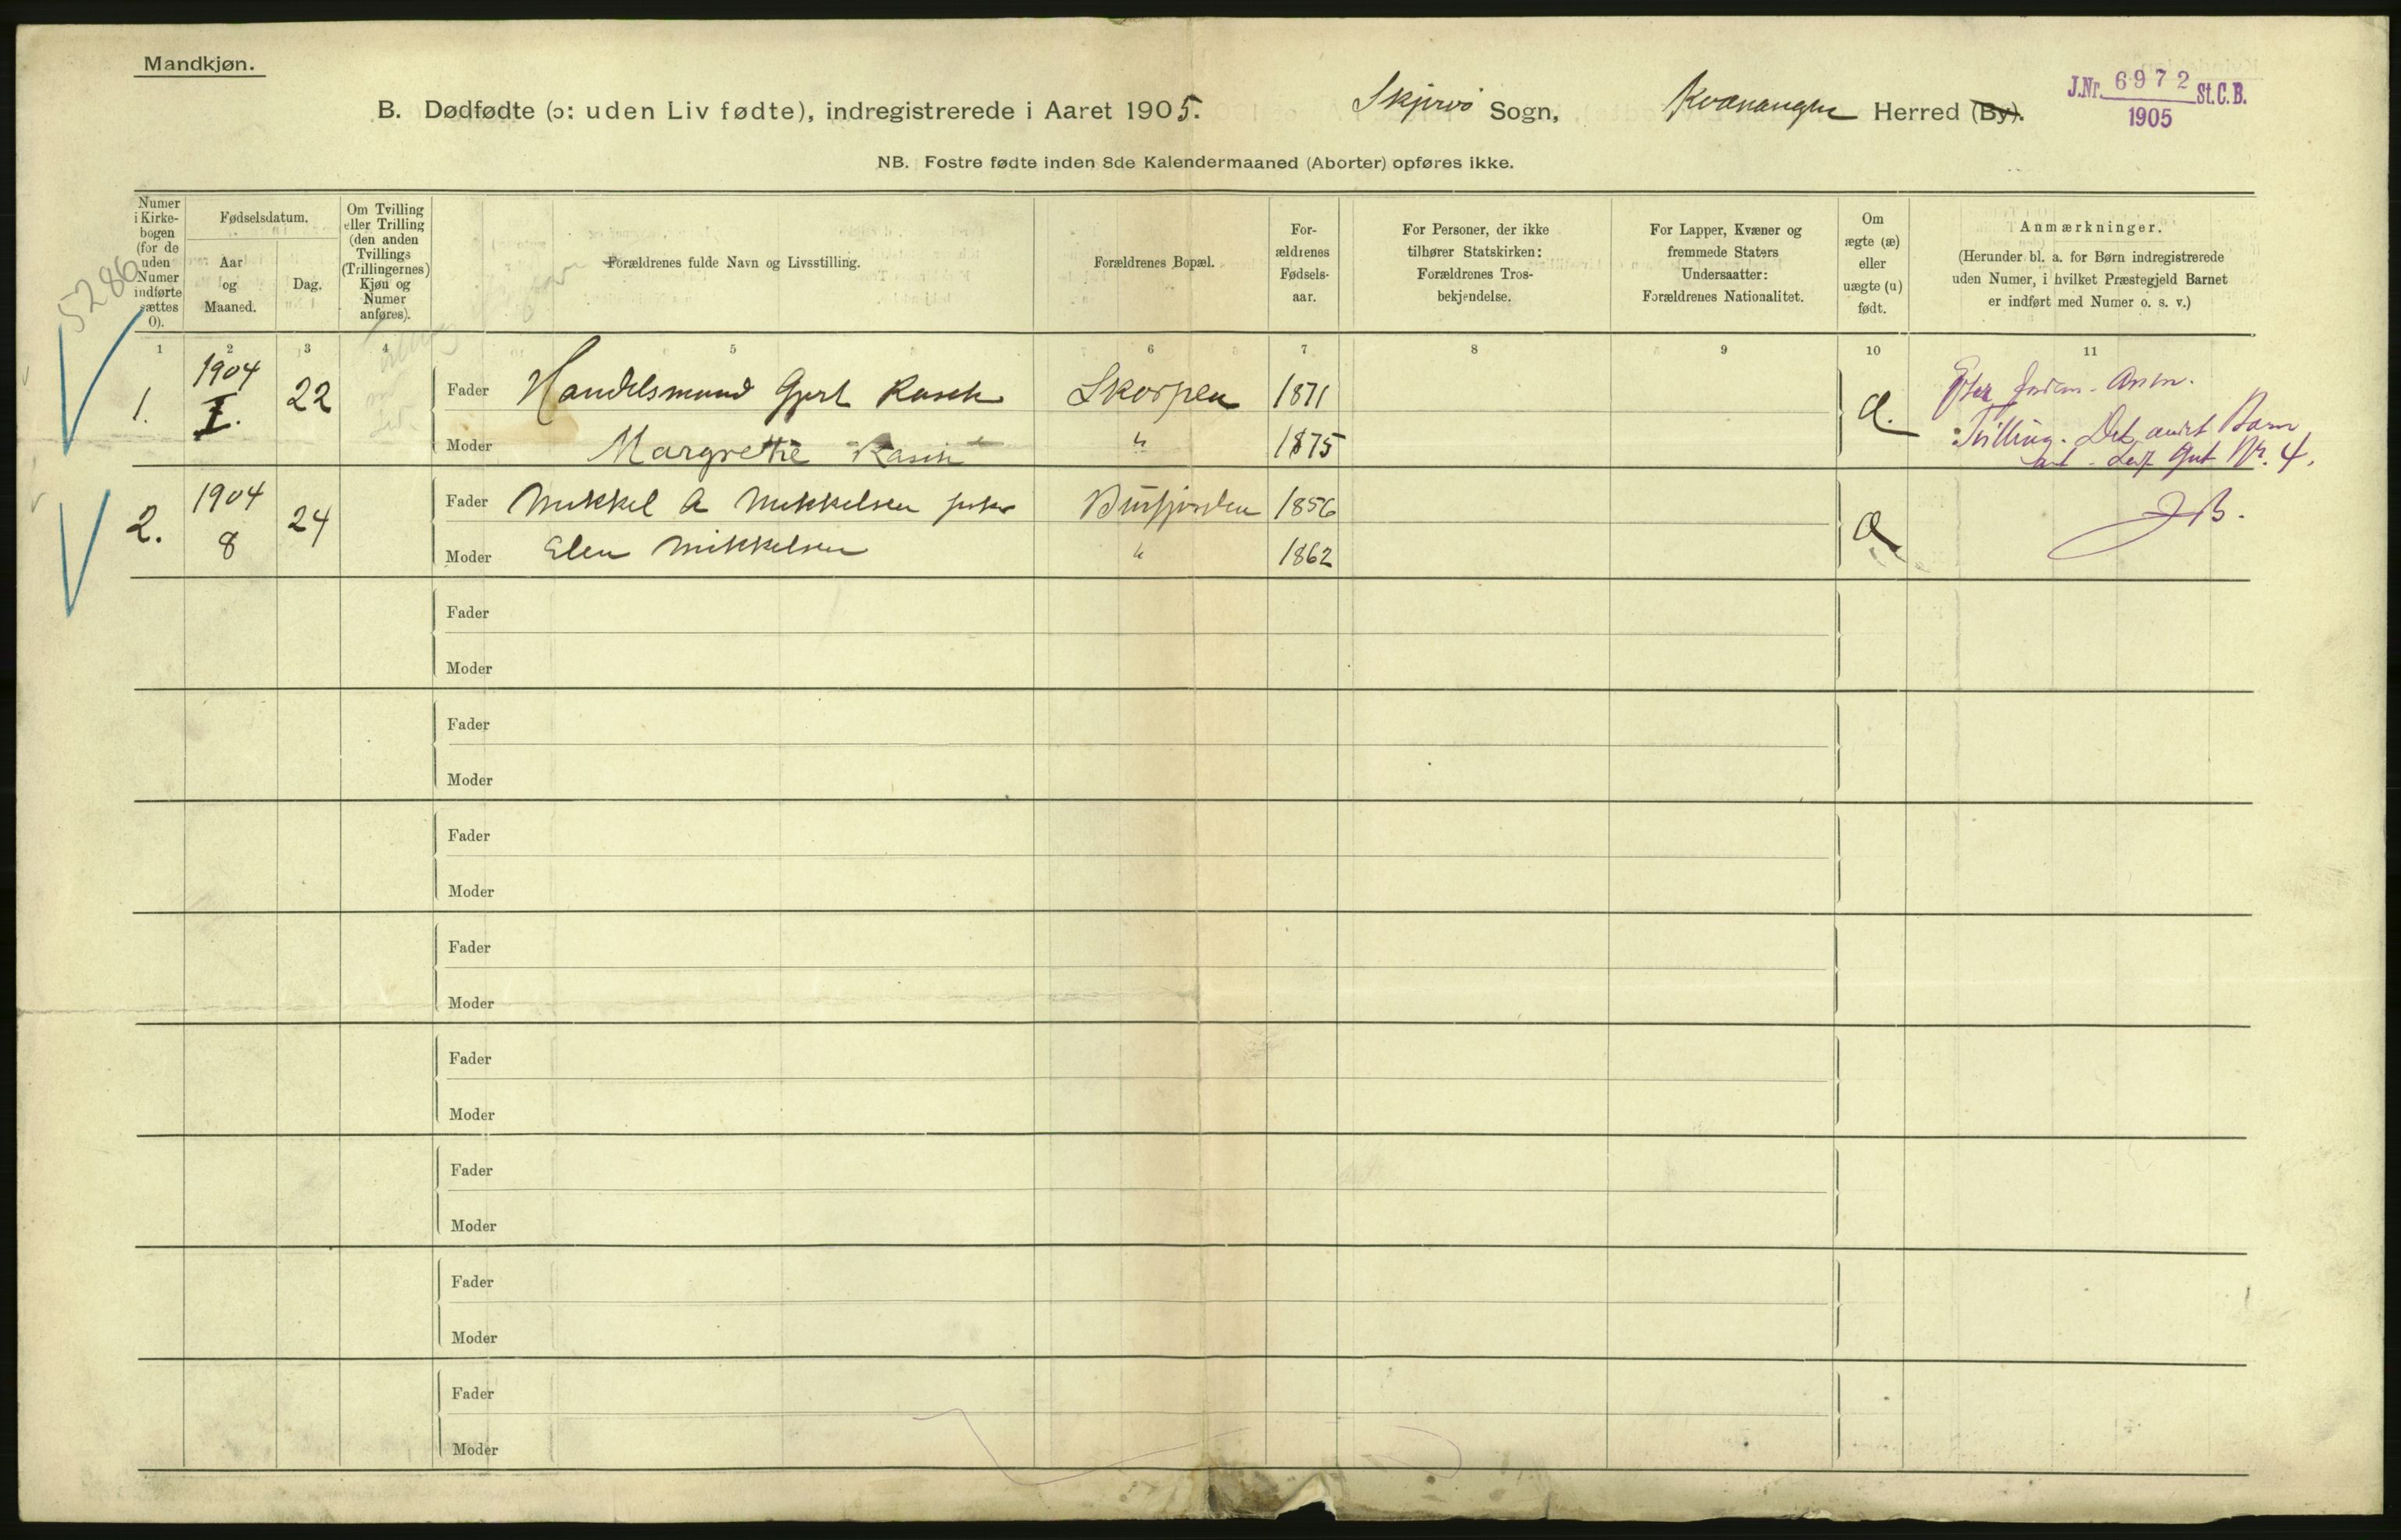 Mandkjøn.
B. Dødfødte (ɔ: uden Liv fødte), indregistrerede i Aaret 1905. Skjervø Sogn, Kvænangen Herred (By).
J.Nr. 6972 St.C.B.
1905
NB. Fostre fødte inden 8de Kalendermaaned (Aborter) opføres ikke.
5286
Numer i Kirkebogen (for de uden Numer indførte sættes 0).
Fødselsdatum.
Aar og Maaned.
Dag.
Om Tvilling eller Trilling (den anden Tvillings (Trillingernes) Kjøn og Numer anføres).
Forældrenes fulde Navn og Livsstilling.
Forældrenes Bopæl.
For-ældrenes Fødsels-aar.
For Personer, der ikke tilhører Statskirken: Forældrenes Tros-bekjendelse.
For Lapper, Kvæner og fremmede Staters Undersaatter: Forældrenes Nationalitet.
Om ægte (æ) eller uægte (u) født.
Anmærkninger.
(Herunder bl. a. for Børn indregistrerede uden Numer, i hvilket Præstegjeld Barnet er indført med Numer o. s. v.)
1 2 3 4 5 6 7 8 9 10 11
1. 1904 I. 22 Fader Handelsmand Gjert Rasch Skorpen 1871 æ.
Moder Margrethe Rasch " 1875
Tvilling. Det andet Barn
Gut Nr. 4.
2. 1904 8 24 Fader Mikkel A Mikkelsen fisker Burfjorden 1856 æ JB.
Moder Elen Mikkelsen " 1862
Fader
Moder
Fader
Moder
Fader
Moder
Fader
Moder
Fader
Moder
Fader
Moder
Fader
Moder
Fader
Moder